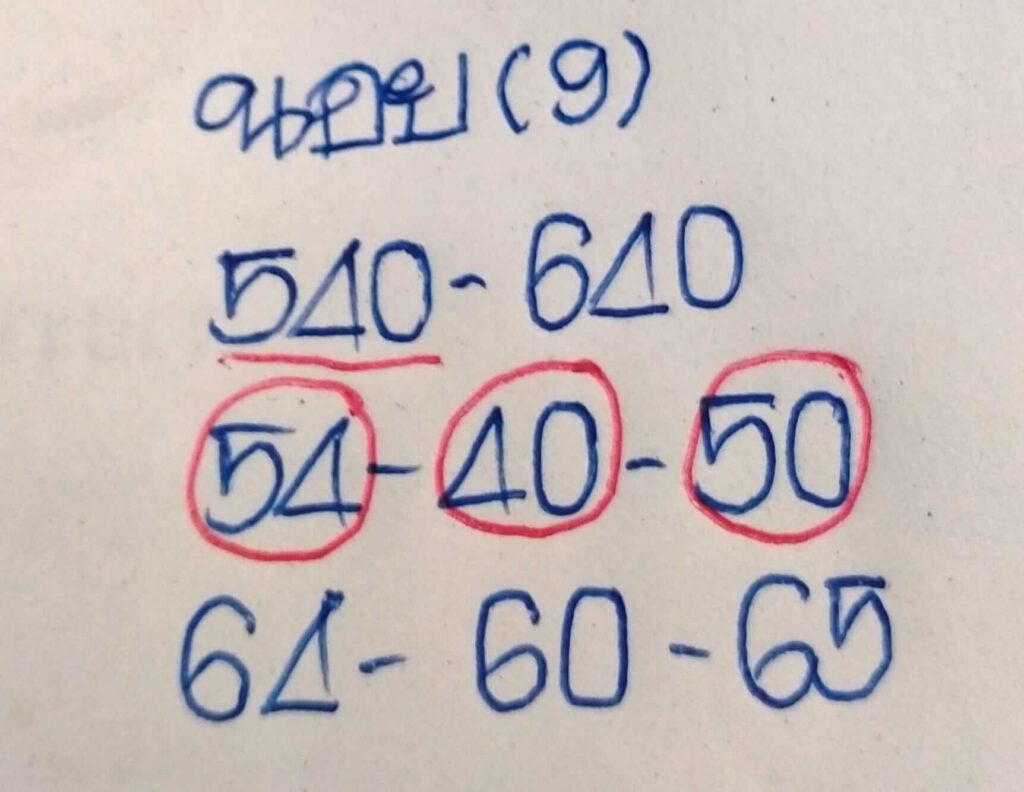 นอย (9)
540 - 640
54 - 40 - 50
64 - 60 - 65